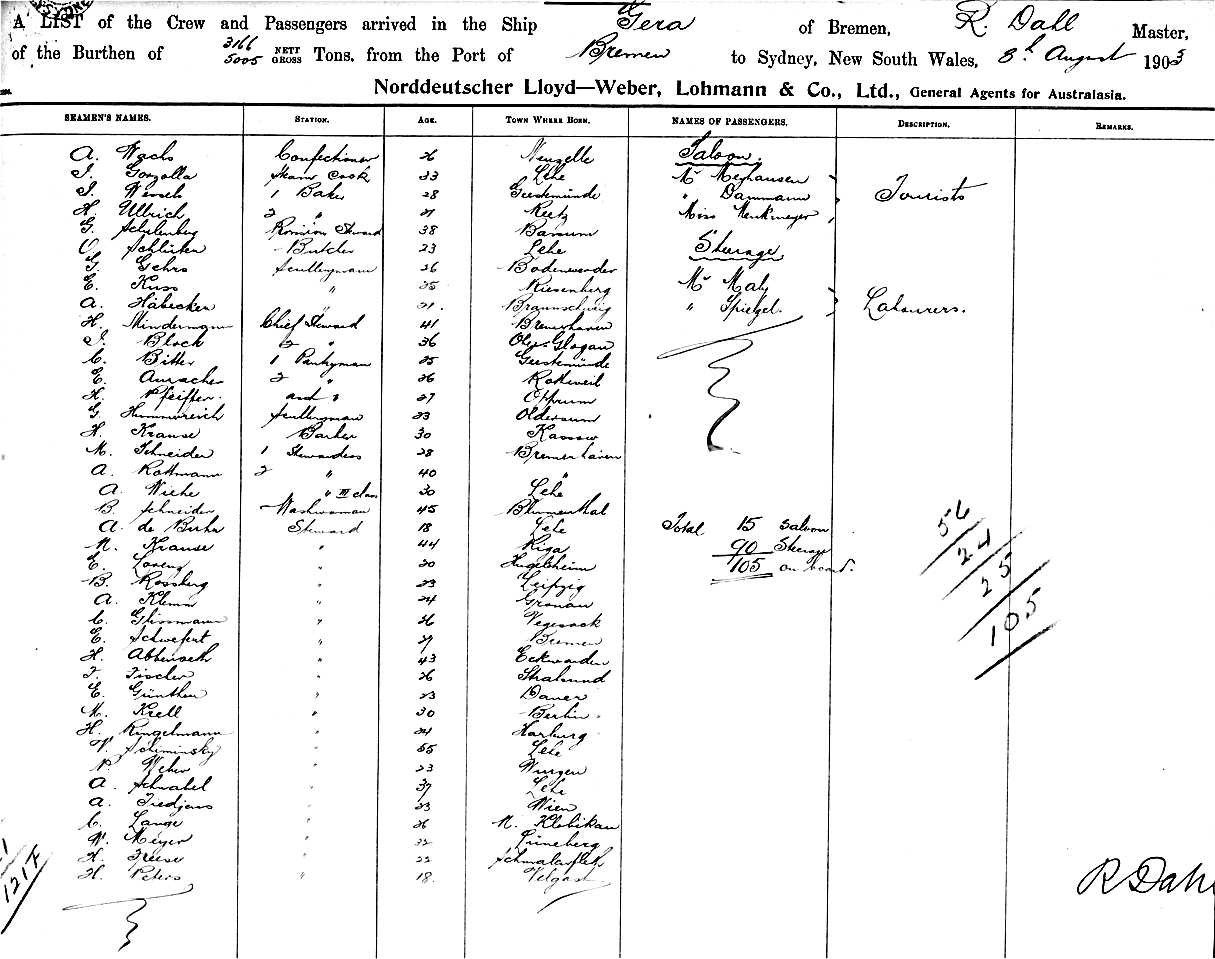 A LIST of the Crew and Passengers arrived in the Ship Gera of Bremen, R. Dahl Master,
of the Burthen of 3166 NETT 5005 GROSS Tons, from the Port of Bremen to Sydney, New South Wales, 8th August 1903
Norddeutscher Lloyd—Weber, Lohmann & Co., Ltd., General Agents for Australasia.
SEAMEN'S NAMES. STATION. AGE. TOWN WHERE BORN. NAMES OF PASSENGERS. DESCRIPTION. REMARKS.
A. Wachs Confectioner 26 Neuzelle Saloon.
Gorzolla Steam Cook 33 Lehe Mr Meyhausen
1 Baker 28 Geestemünde " Dammann Tourists
H. Ullrich 2 " 21 Reetz Miss
G. Schulenberg Provision Steward 38 Barsum
O. Schlüter Butcher 23 Lehe Steerage
G. Gehrs Sculleryman 26 Bodenwerder
E. Kuss " 25 Riesenberg Mr Maly
A. Habecker " 21. Braunschweig " Spietzel. Labourers.
H. Mindermann Chief Steward 41 Bremerhaven
Block 2 " 36 Ober Glogau
C. Bitter 1 Pantryman 25 Geestemünde
E. Auracher 2 " 26 Rottweil
H. Pfeiffer. and " 27
G. Hummereich Sculleryman 23 Oldersum
H. Krause Barber 30
M. Schneider 1 Stewardess 28 Bremerhaven
A. Rottmann 2 " 40 "
A. Wiehe " III class 30 Lehe
B. Schneider Washwoman 45 Blumenthal
A. de Buhr Steward 18 Lehe Total 15 Saloon
M. Krause " 44 Riga 90 Steerage
E. Lorenz " 20 Hugelsheim 105 on board.
B. Rossberg " 23 Leipzig
A. Klemm " 24 Gronau
C. Glissmann " 26 Vegesack
E. Schwefert " 27 Bremen
H. Abbenseth " 43 Eckwarden
F. Fischer " 26 Stralsund
E. Günther " 23
M. Krell " 30 Berlin.
H. Ringelmann " 24 Harburg
V. Schiminsky " 55 Lehe
P. Weber " 23 Wurzen
A. Schnabel " 37 Lehe
A. Tiedjens " 23 Wien
C. Lange " 26 N. Klobikau
W. Meyer " 22 Lüneberg
H. Freese " 22 Schmalenfleth
H. Peters " 18. Velgast
56
24
25
105
1217
R Dahl